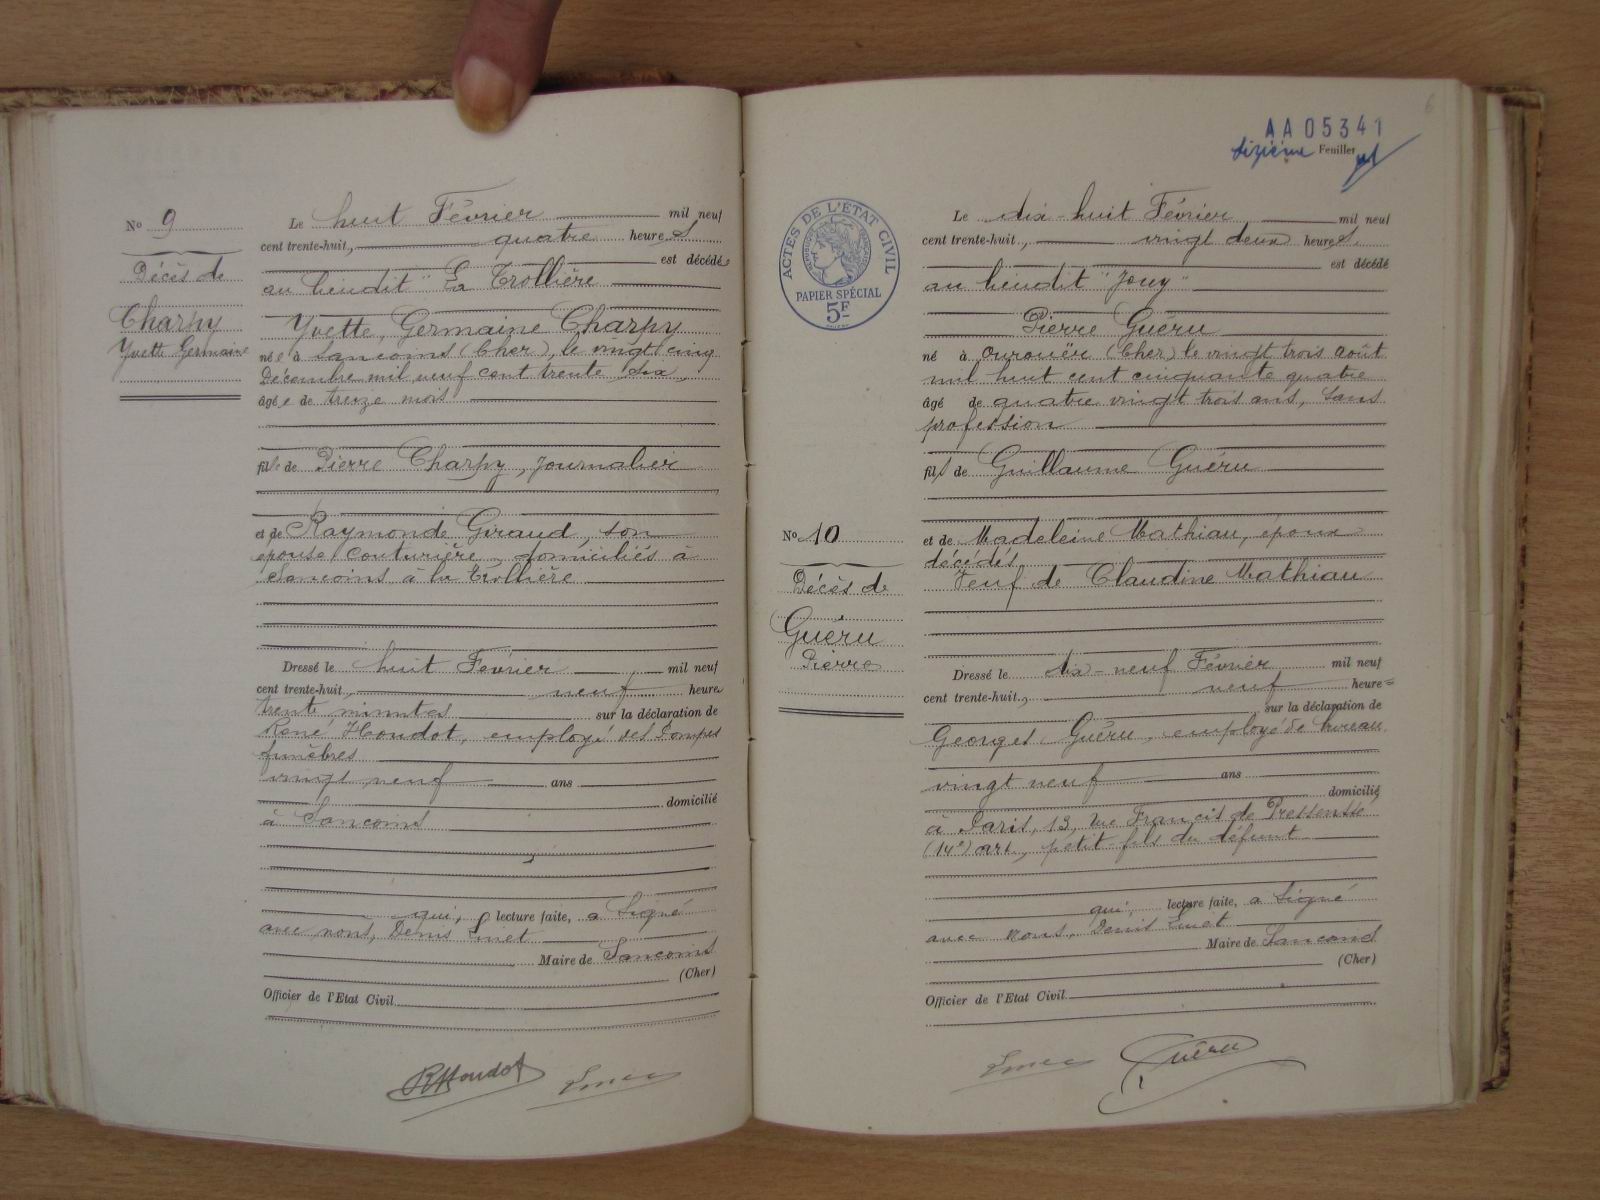 No 9
Décès de
Charpy
Yvette Germaine
Le huit Février mil neuf
cent trente-huit, quatre heures
est décédée
au lieudit "La Trollière
Yvette, Germaine Charpy
née à Sancoins (Cher), le vingt cinq
Décembre mil neuf cent trente six,
âgée de treize mois
fille de Pierre Charpy, Journalier
et de Raymonde Giraud, son
épouse, couturière, domiciliés à
Sancoins à la Trollière
Dressé le huit Février mil neuf
cent trente-huit, neuf heures
trente minutes sur la déclaration de
René Houdot, employé des Pompes
funèbres
vingt neuf ans
domicilié
à Sancoins
qui, lecture faite, a signé
avec nous, Denis
Maire de Sancoins
(Cher)
Officier de l'Etat Civil
RHoudot
AA05341
sixième Feuillet
6
ACTES DE L'ÉTAT CIVIL
PAPIER SPÉCIAL
5F
No 10
Décès de
Guéru
Pierre
Le dix-huit Février mil neuf
cent trente-huit, vingt deux heures
est décédé
au lieudit "Jouy"
Pierre Guéru
né à Ourouër (Cher) le vingt trois août
mil huit cent cinquante quatre
âgé de quatre vingt trois ans, sans
profession
fils de Guillaume Guéru
et de Madeleine Mathiau, époux
décédés
Veuf de Claudine Mathiau
Dressé le dix-neuf Février mil neuf
cent trente-huit, neuf heures
sur la déclaration de
Georges Guéru, employé de bureau
vingt neuf ans
domicilié
à Paris, 13, rue Francis de Pressensé
(14e) arr, petit-fils du défunt
qui, lecture faite, a signé
avec nous, Denis
Maire de Sancoins
(Cher)
Officier de l'Etat Civil
Guéru